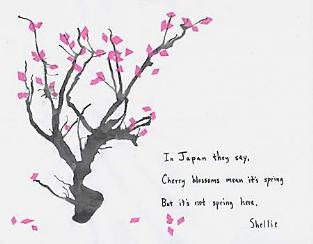 In Japan they say,
Cherry blossoms mean it's spring
But it's not spring here.
Shellie